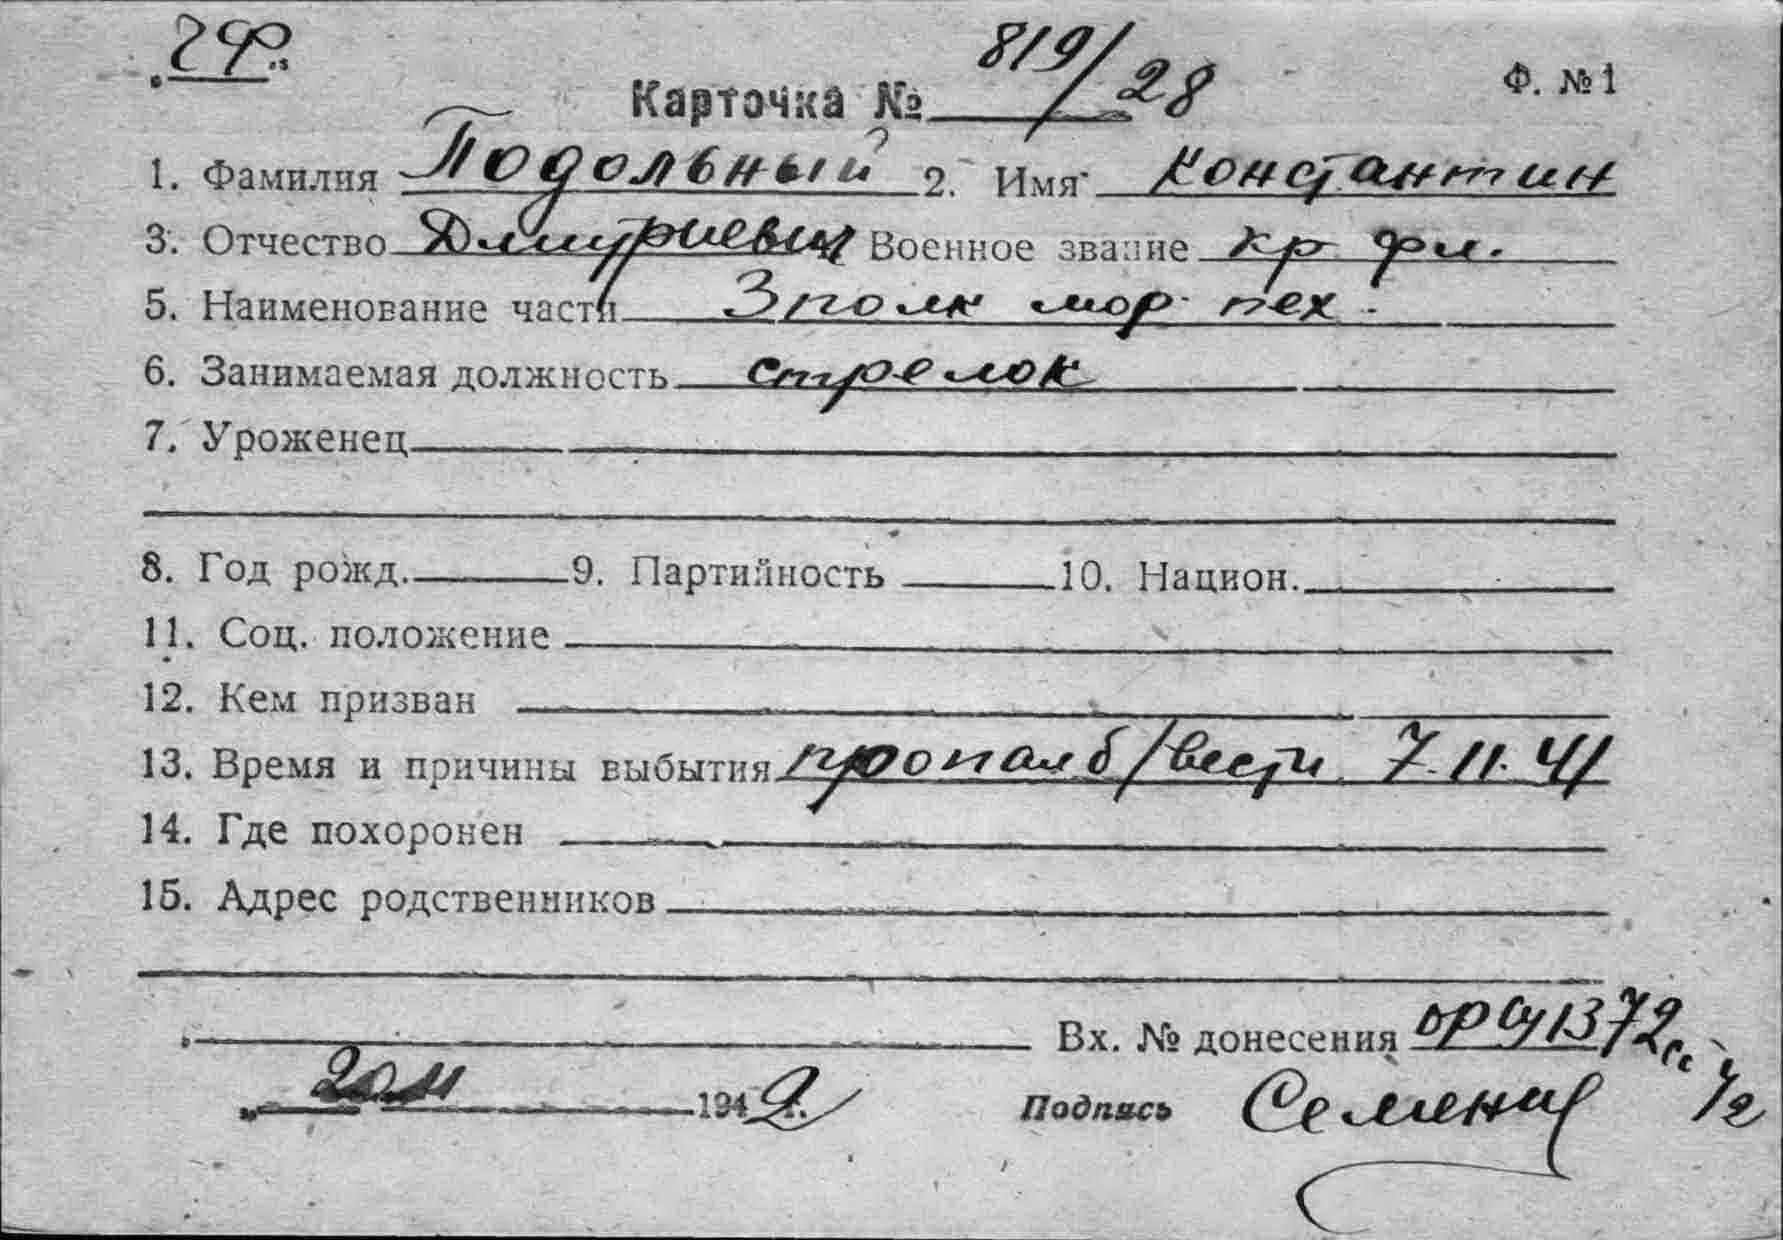 819/28
Карточка № Ф. № 1
1. Фамилия Подольный 2. Имя Константин
3. Отчество Дмитриевич Военное звание кр фл.
5. Наименование части 3 полк мор. пех.
6. Занимаемая должность стрелок
7. Уроженец
8. Год рожд. 9. Партийность 10. Национ.
11. Соц. положение
12. Кем призван
13. Время и причины выбытия пропал б/вести 7.11.41
14. Где похоронен
15. Адрес родственников
Вх. № донесения 1372
1942 г. Подпись